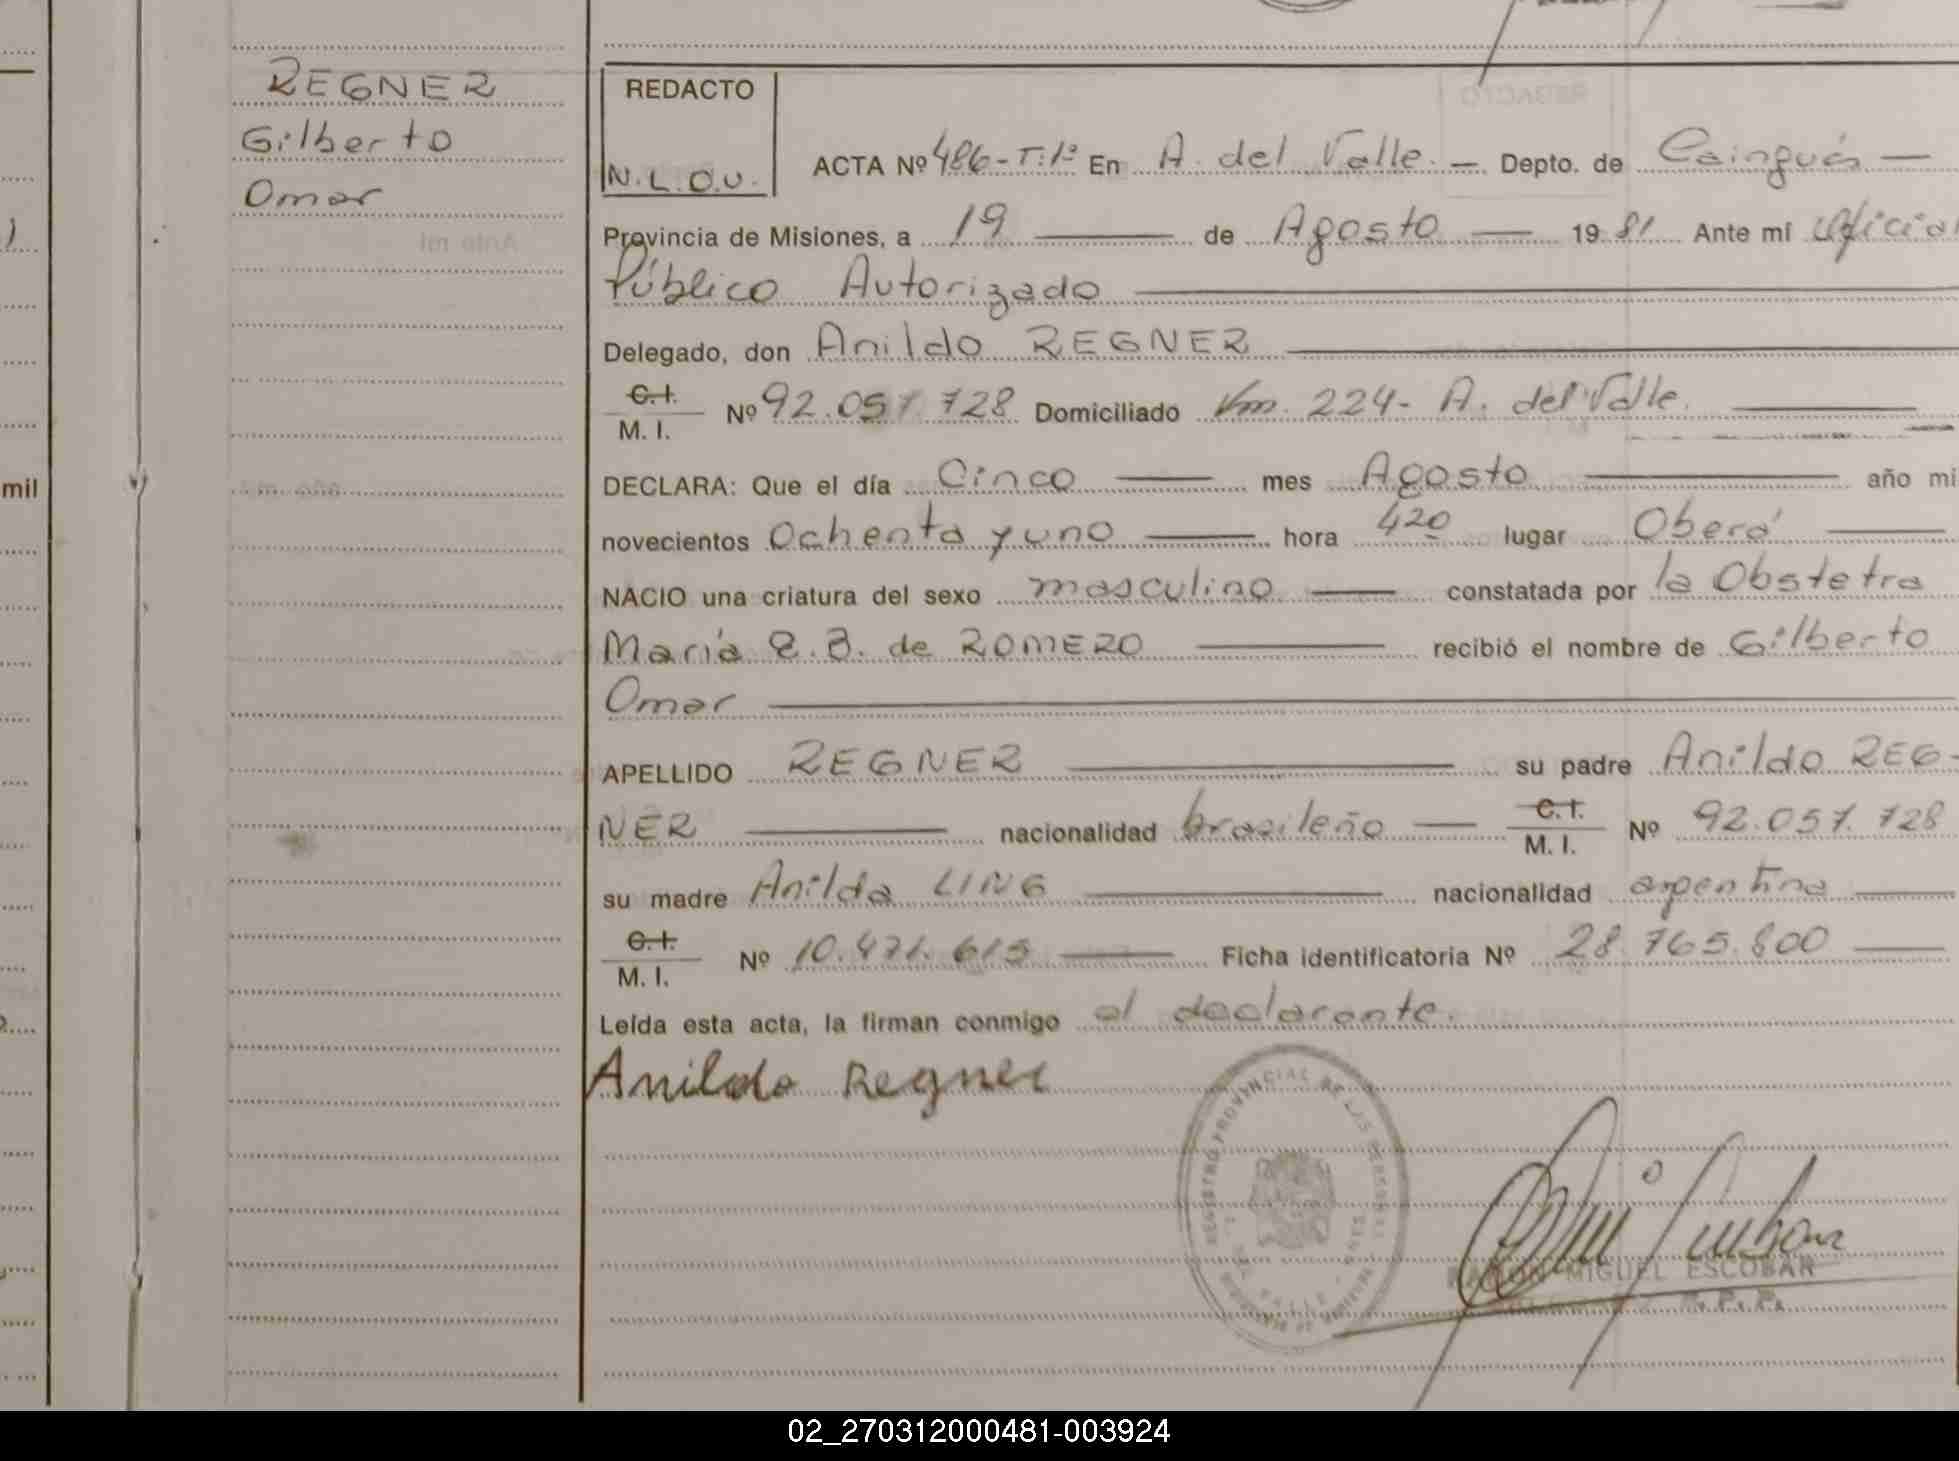 REGNER
Gilberto
Omar
mil
REDACTO
N.L.O.U.
ACTA Nº 486-T:1º En A. del Valle. — Depto. de Cainguás —
Provincia de Misiones, a 19 — de Agosto — 1981 Ante mí Oficial
Público Autorizado —
Delegado, don Anildo REGNER —
C.I.
M. I. Nº 92.051.728 Domiciliado Km. 224- A. del Valle. —
DECLARA: Que el día Cinco — mes Agosto — año mi
novecientos Ochenta y uno — hora 420 lugar Oberá —
NACIO una criatura del sexo masculino — constatada por la Obstetra
María E. B. de ROMERO — recibió el nombre de Gilberto
Omar —
APELLIDO REGNER — su padre Anildo REG-
NER — nacionalidad brasileño — C.I. M. I. Nº 92.051.728
su madre Anilda LING — nacionalidad argentina —
C.I.
M. I. Nº 10.471.615 — Ficha identificatoria Nº 28.765.800 —
Leída esta acta, la firman conmigo el declarante.
Anildo Regner
REGISTRO PROVINCIAL DE LAS PERSONAS
RAMON MIGUEL ESCOBAR
02_270312000481-003924